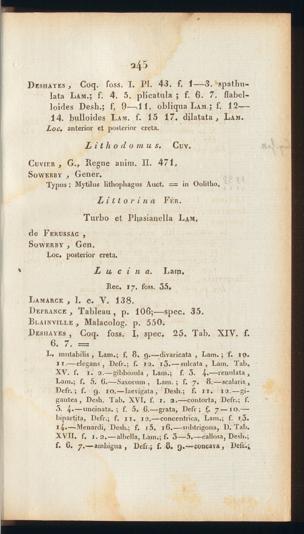 245
DESHAYES, Coq. foss. I. Pl. 43. f. 1—3. spathu-
lata LAM.; f. 4. 5. plicatula; f. 6. 7. flabel-
loides Desh.; f, 9—11. obliqua LAM.; f. 12—
14. bulloides LAM. f. 15 17. dilatata, LAM.
Loc. anterior et posterior creta.
Lithodomus. CUV.
CUVIER, G., Regne anim. II. 471.
SOWERBY, Gener.
Typus: Mytilus lithophagus Auct. = in Oolitho.
Littorina FER.
Turbo et Phasianella LAM.
de FERUSSAC,
SOWERBY, Gen.
Loc. posterior creta.
Lucina. Lam.
Rec. 17. foss. 35.
LAMARCK, l. c. V. 138.
DEFRANCE, Tableau, p. 106;—spec. 35.
BLAINVILLE, Malacolog. p. 550.
DESHAYES, Coq. foss. I. spec. 25. Tab. XIV. f.
6. 7. =
L. mutabilis, Lam.; f. 8. 9.—divaricata, Lam.; f. 10.
11.—elegans, Defr.; f. 12. 13.—sulcata, Lam. Tab.
XV. f. 1. 2.—gibbosula, Lam.; f. 3. 4.—renulata,
Lam.; f. 5. 6.—Saxorum, Lam.; f. 7. 8.—scalaris,
Defr.; f. 9. 10.—laevigata, Desh.; f. 11. 12.—gi-
gantea, Desh. Tab. XVI. f. 1. 2.—contorta, Defr.; f.
3. 4.—uncinata.; f. 5. 6.—grata, Defr; f. 7—10.—
bipartita, Defr.; f. 11. 12.—concentrica, Lam.; f. 13.
14.—Menardi, Desh.; f. 15. 16.—subtrigona, D. Tab.
XVII. f. 1. 2.—albella, Lam.; f. 3—5.—callosa, Desh.;
f. 6. 7.—ambigua, Defr.; f. 8. 9.—concava, Defr.;